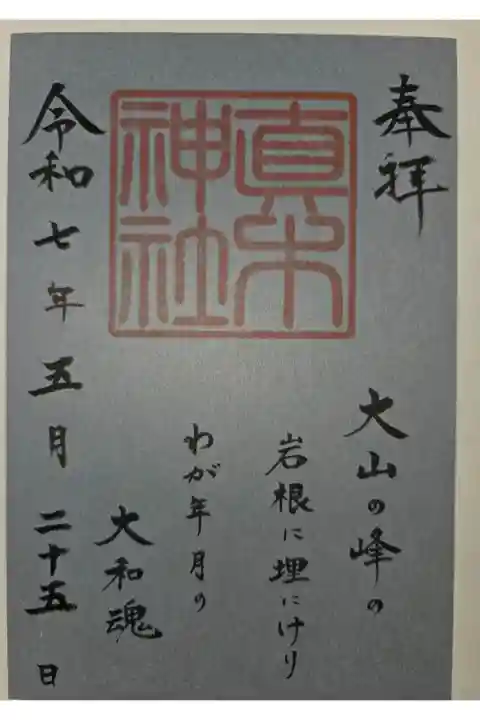 奉拝
真木神社
大山の峰の
岩根に埋にけり
わが年月の
大和魂
令和七年五月二十五日